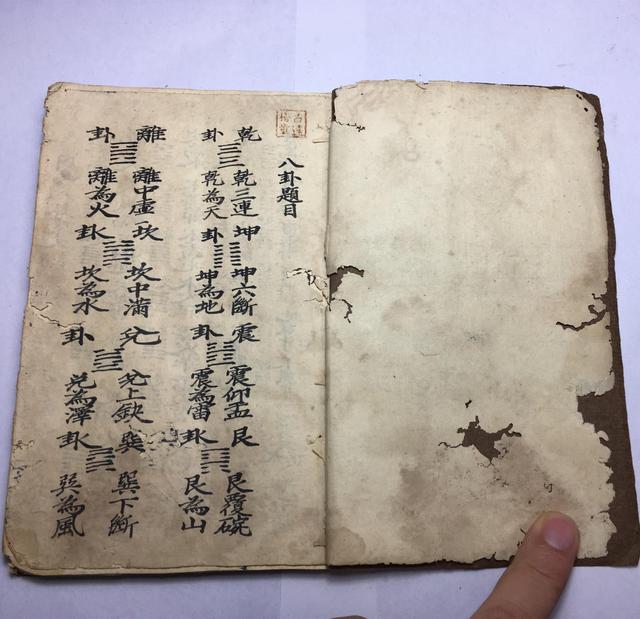 八卦題目
乾乾三連坤坤六斷震震仰盂艮艮覆碗
卦乾為天卦坤為地卦震為雷卦艮為山
離離中虛坎坎中滿兌兌上鈌巽巽下斷
卦離為火卦坎為水卦兌為澤卦巽為風